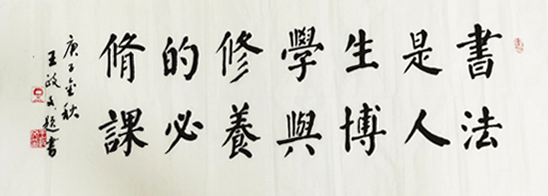 書法
是人
生博
學與
修養
的必
脩課
庚子金秋
王政題書